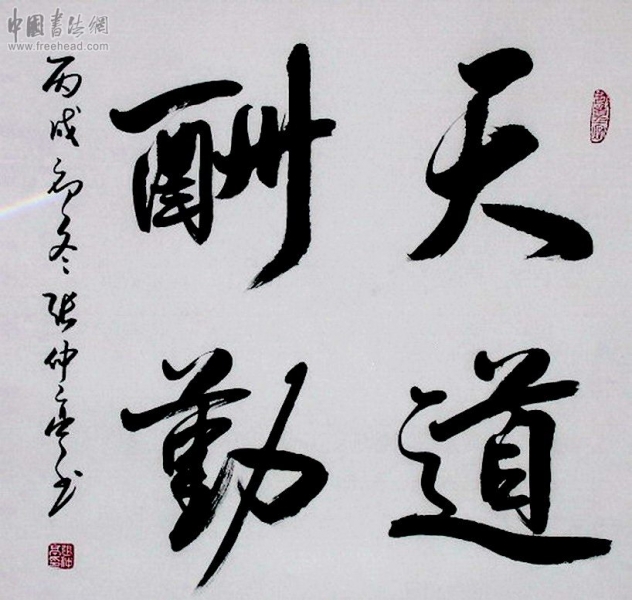 中國書法網
www.freehead.com
天道
酬勤
丙戌初冬张仲亭书